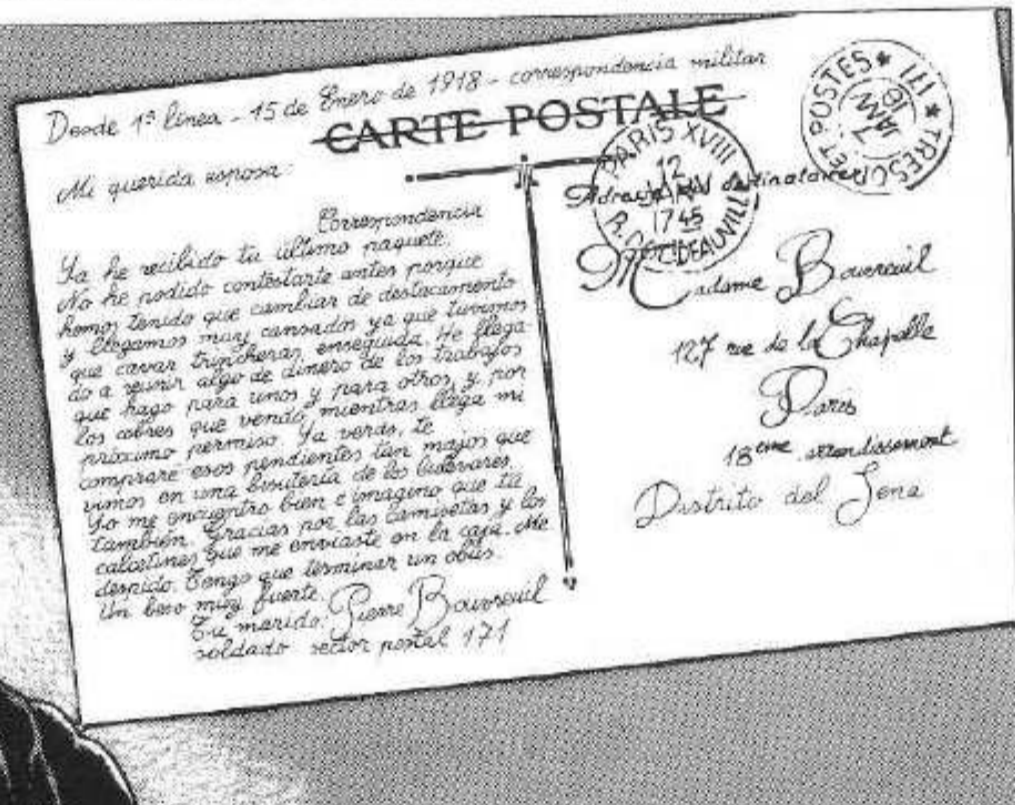 Desde 1ª línea - 15 de Enero de 1918 - correspondencia militar
CARTE POSTALE
Mi querida esposa:
Correspondencia
Ya he recibido tu último paquete.
No he podido contestarte antes porque
hemos tenido que cambiar de destacamento
y llegamos muy cansados ya que tuvimos
que cavar trincheras enseguida. He llega-
do a reunir algo de dinero de los trabajos
que hago para unos y para otros, y por
los cobres que vendo mientras llega mi
próximo permiso. Ya verás, te
compraré esos pendientes tan majos que
vimos en una bisutería de los bulevares.
Yo me encuentro bien e imagino que tú
también. Gracias por las camisetas y los
calcetines que me enviaste en la caja. Me
despido. Tengo que terminar un obús.
Un beso muy fuerte.
Tu marido: Pierre Bouvreuil
soldado sector postal 171
TRESOR ET POSTES * 171 *
7
JANV
18
PARIS XVIII
12
1745
R.
destinataire
Madame Bouvreuil
127 rue de la Chapelle
Paris
18eme arrondissement
Distrito del Sena